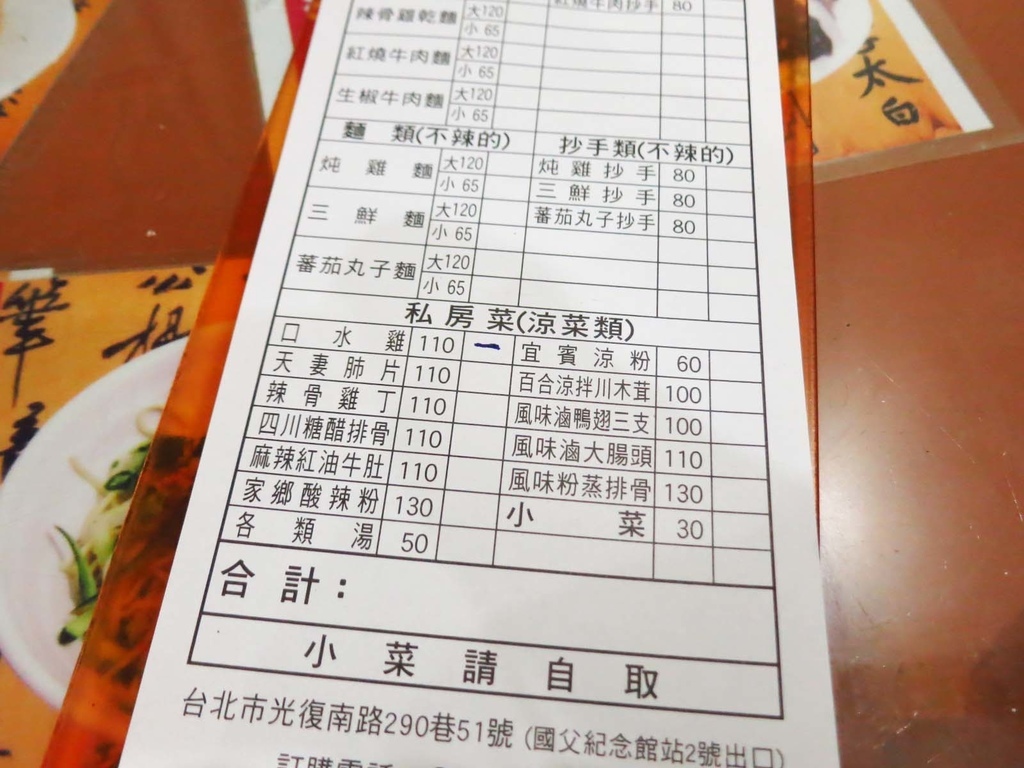 辣骨雞乾麵 大120 紅燒牛肉抄手 80
小 65
紅燒牛肉麵 大120
小 65
生椒牛肉麵 大120
小 65
麵 類(不辣的) 抄手類(不辣的)
炖雞麵 大120 炖雞抄手 80
小 65 三鮮抄手 80
三鮮麵 大120 蕃茄丸子抄手 80
小 65
蕃茄丸子麵 大120
小 65
私房菜(涼菜類)
口水雞 110 一 宜賓涼粉 60
天妻肺片 110 百合涼拌川木茸 100
辣骨雞丁 110 風味滷鴨翅三支 100
四川糖醋排骨 110 風味滷大腸頭 110
麻辣紅油牛肚 110 風味粉蒸排骨 130
家鄉酸辣粉 130 小菜 30
各類湯 50
合計：
小菜請自取
台北市光復南路290巷51號 (國父紀念館站2號出口)
太白